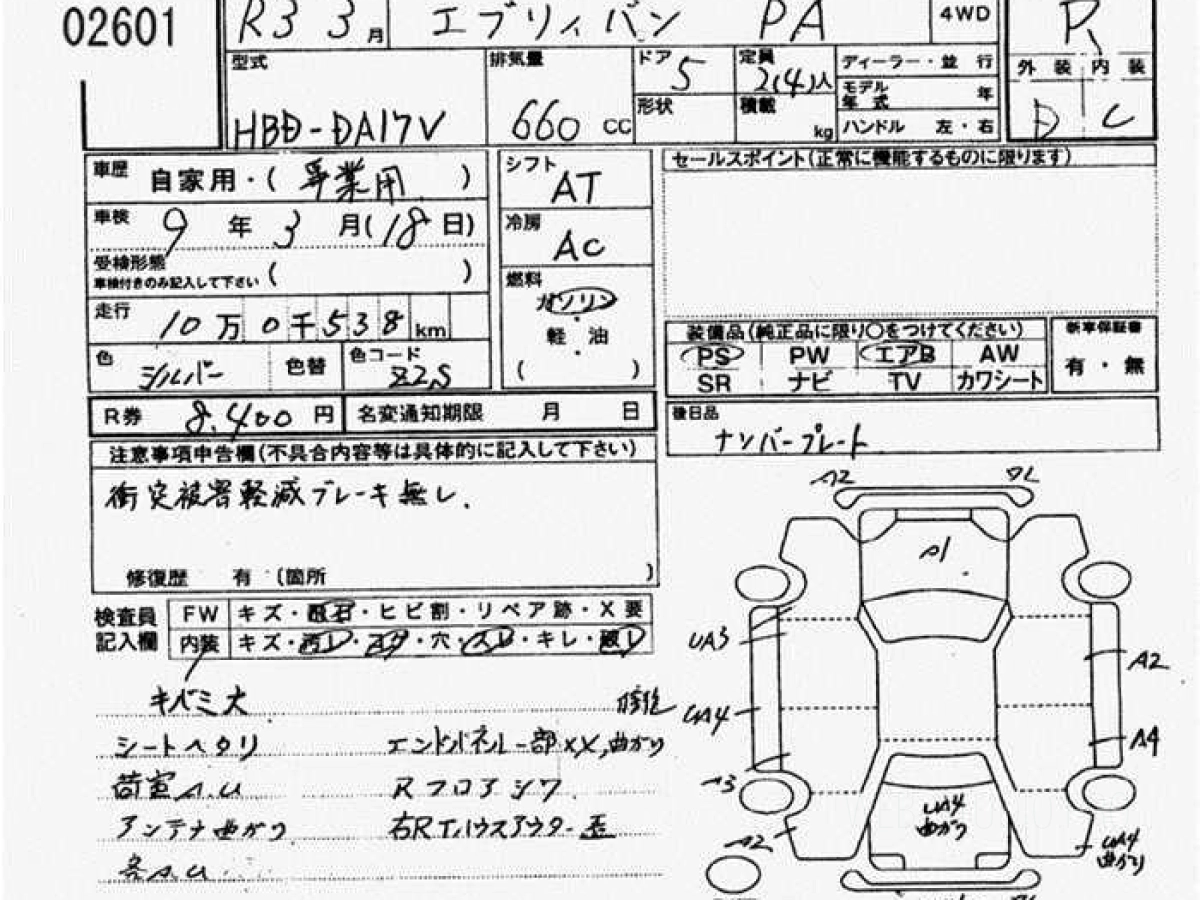 02601
R3 3月 エブリィバン PA 4WD R
型式 HBD-DA17V
排気量 660 CC
ドア 5
定員 2(4)人
形状
積載 kg
ディーラー・並行
モデル年式 年
ハンドル 左・右
外装 内装
D C
車歴 自家用・(事業用)
車検 9年3月(18日)
受検形態
車検付きのみ記入して下さい ( )
走行 10万0千538km
色 シルバー 色替 色コード Z2S
シフト AT
冷房 AC
燃料 ガソリン
・
軽油
・
( )
セールスポイント(正常に機能するものに限ります)
装備品(純正品に限り○をつけてください)
PS PW エアB AW
SR ナビ TV カワシート
新車保証書
有・無
R券 8,400円 名変通知期限 月 日
後日品
ナンバープレート
注意事項申告欄(不具合内容等は具体的に記入して下さい)
衝突被害軽減ブレーキ無し.
修復歴 有 (箇所 )
検査員記入欄
FW キズ・飛石・ヒビ割・リペア跡・X要
内装 キズ・汚レ・コゲ・穴・スレ・キレ・破レ
キバミ大
シートヘタリ エンドパネル一部XX,曲がり
荷室A.U Rフロアシワ
アンテナ曲がり 右RTハウスアウター歪
各A.U
A2
A1
UA3
A2
UA4
A4
A3
UA4
曲がり
A2
UA4
曲がり